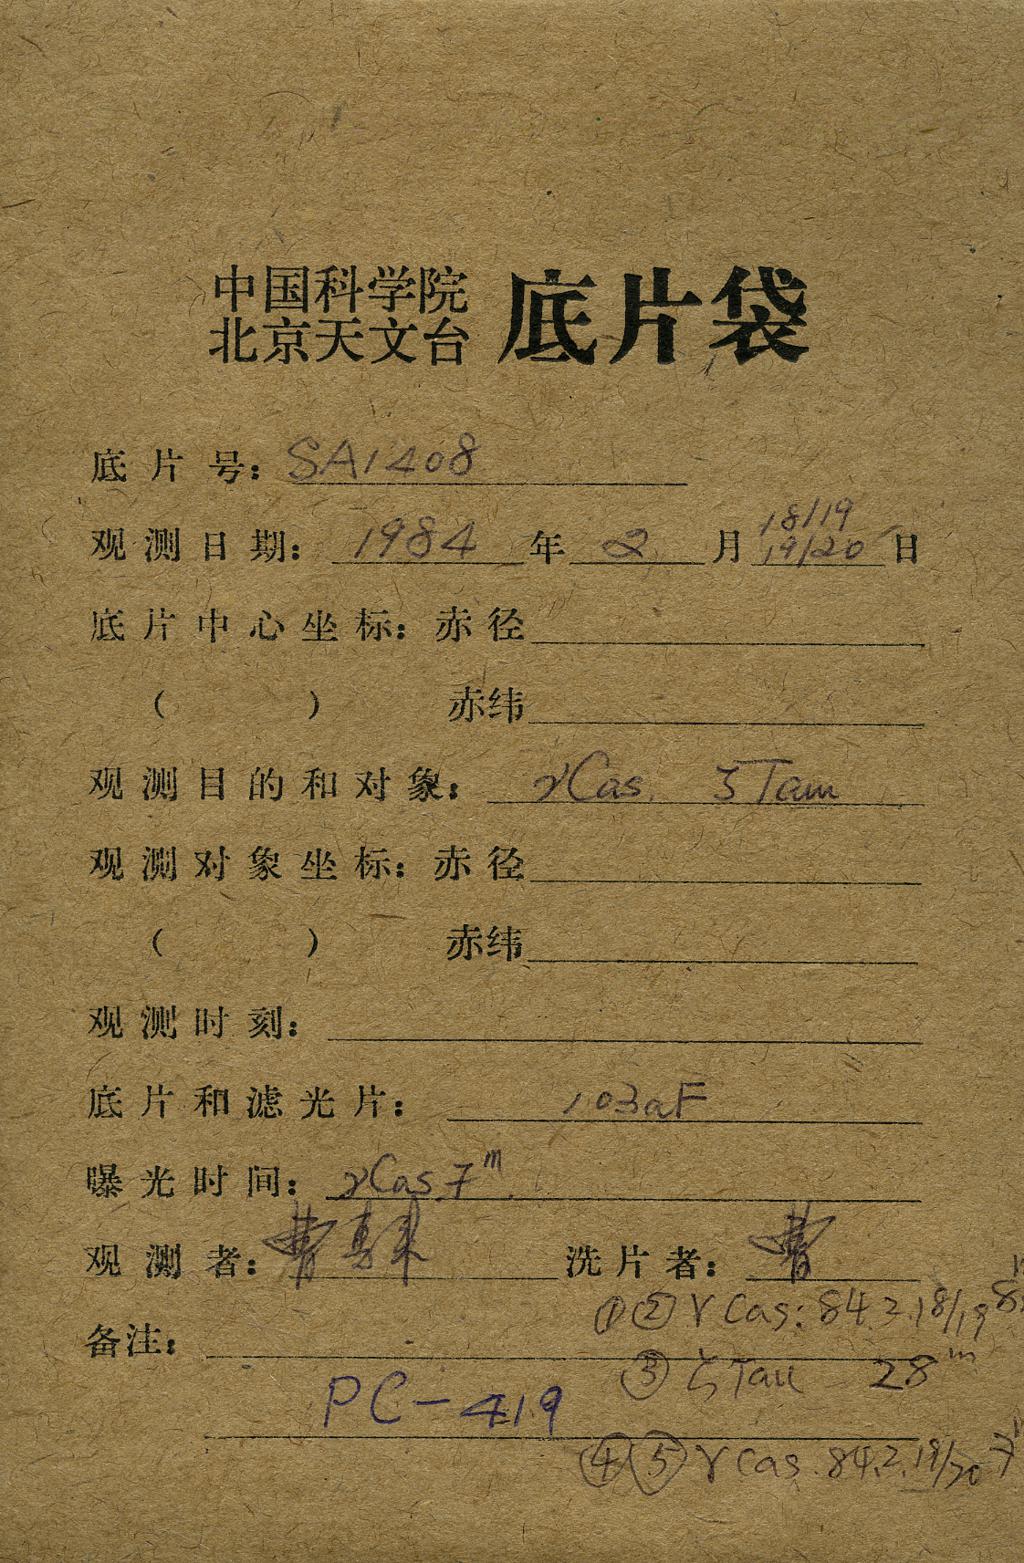 中国科学院
北京天文台 底片袋
底片号：SA1408
18/19
观测日期：1984年2月19/20日
底片中心坐标：赤径
（ ） 赤纬
观测目的和对象：γCas. ζTau
观测对象坐标：赤径
（ ） 赤纬
观测时刻：
底片和滤光片：103aF
曝光时间：γCas.7m
观测者：曹 洗片者：曹
①②γCas:84.2.18/19 8m
备注：
③ζTau 28m
PC-419
④⑤γCas.84.2.19/20 7m